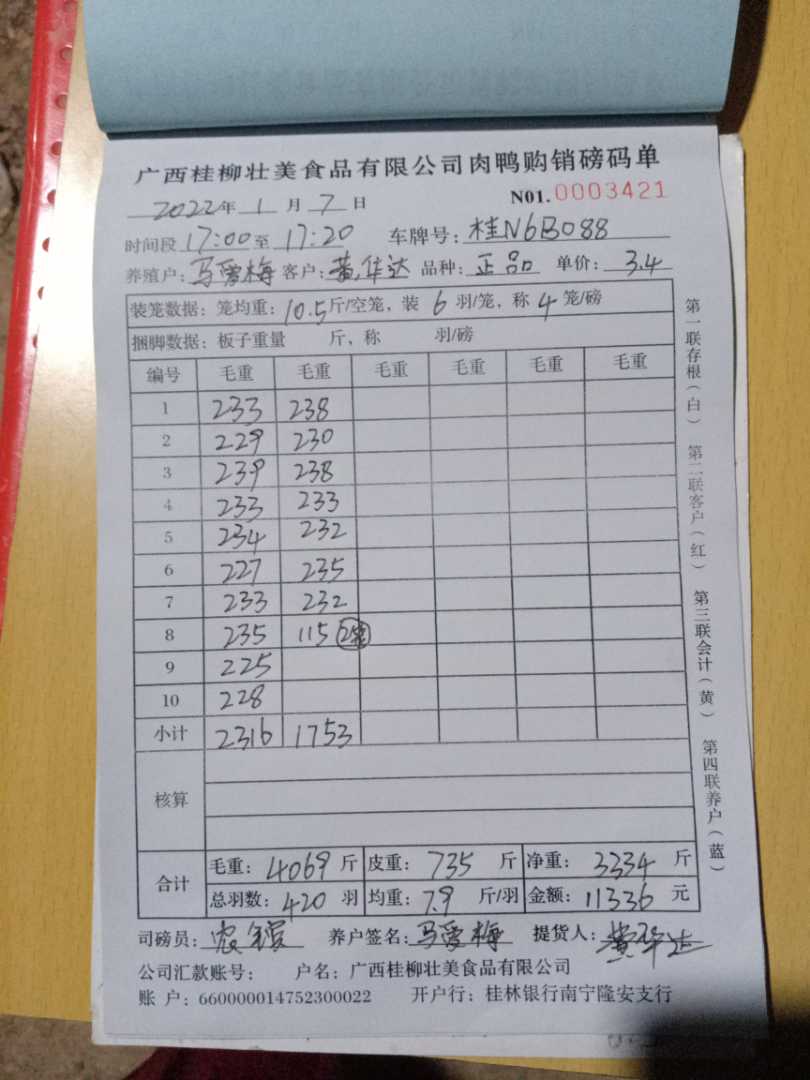 广西桂柳壮美食品有限公司肉鸭购销磅码单
2022年 1 月 7 日 N01.0003421
时间段 17:00 至 17:20 车牌号: 桂N6B088
养殖户: 马爱梅 客户: 黄华达 品种: 正品 单价: 3.4
装笼数据: 笼均重: 10.5 斤/空笼, 装 6 羽/笼, 称 4 笼/磅
捆脚数据: 板子重量 斤, 称 羽/磅
编号 毛重 毛重 毛重 毛重 毛重 毛重
1 233 238
2 229 230
3 239 238
4 233 233
5 234 232
6 227 235
7 233 232
8 235 115 2笼
9 225
10 228
小计 2316 1753
核算
合计 毛重: 4069 斤 皮重: 735 斤 净重: 3334 斤
总羽数: 420 羽 均重: 7.9 斤/羽 金额: 11336 元
司磅员: 养户签名: 马爱梅 提货人: 黄华达
公司汇款账号: 户名: 广西桂柳壮美食品有限公司
账 户: 660000014752300022 开户行: 桂林银行南宁隆安支行
第一联存根(白) 第二联客户(红) 第三联会计(黄) 第四联养户(蓝)